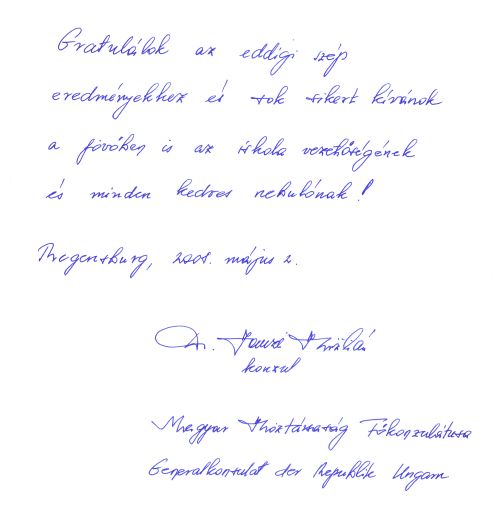 Gratulálok az eddigi szép
eredményekhez és sok sikert kívánok
a jövőben is az iskola vezetőségének
és minden kedves nebulónak!
Regensburg, 2008. május 2.
Dr.
konzul
Magyar Köztársaság Főkonzulátusa
Generalkonsulat der Republik Ungarn